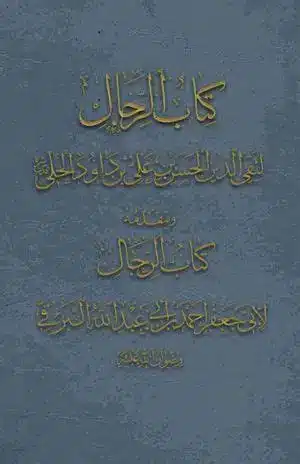 كتاب الرجال
لتقي الدين الحسن بن علي بن داود الحلي
ويقدمه
كتاب الرجال
لابي جعفر احمد بن ابي عبد الله البرقي
رضوان الله عليه